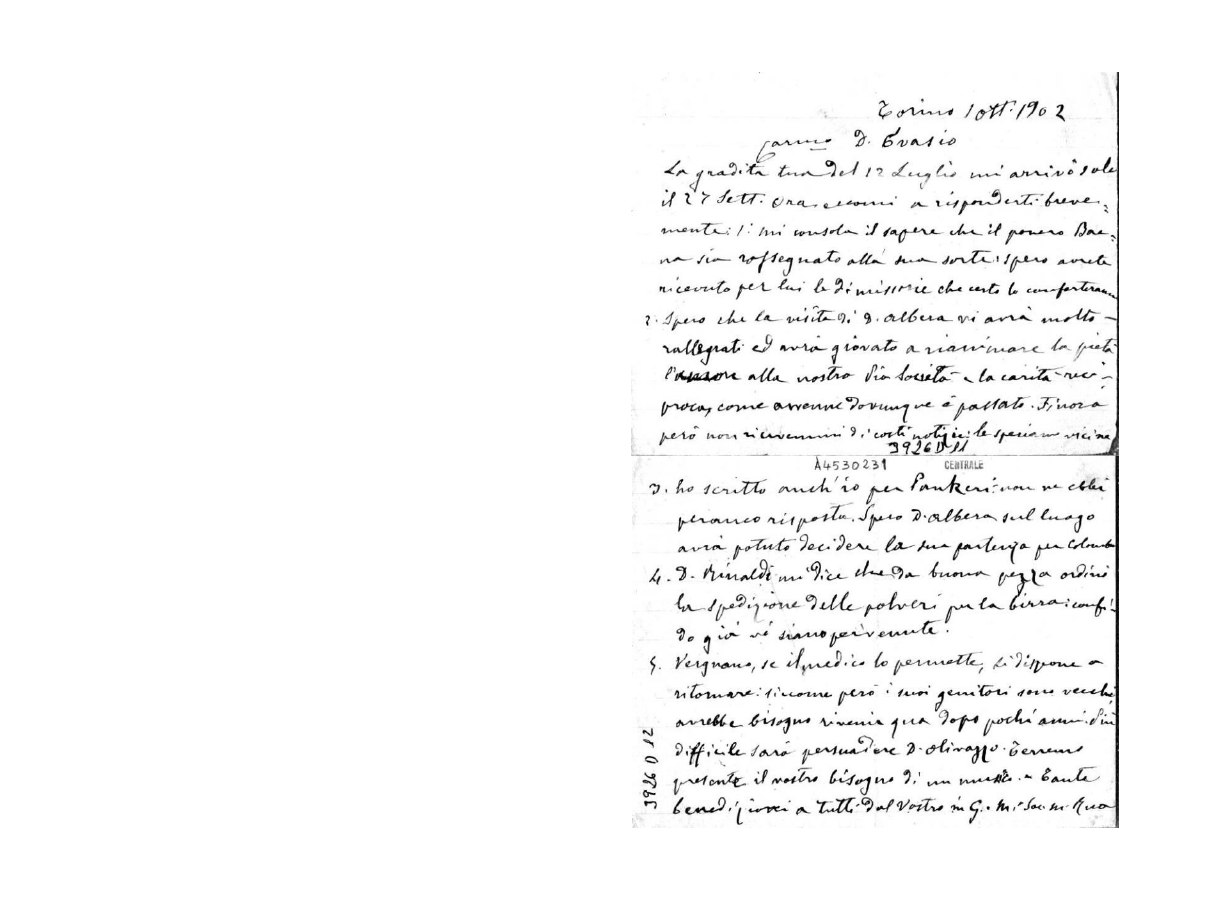 Torino 1 ott. 1902
Carmo D. Evasio
La gradita tua del 12 Luglio mi arrivò solo
il 27 Sett. ora eccomi a risponderti breve=
mente: 1. mi consola il sapere che il povero Bae=
na sia rassegnato alla sua sorte: spero avrete
ricevuto per lui le dimissorie che certo lo conforteranno
2. Spero che la visita di D. Albera vi avrà molto
rallegrati ed avrà giovato a rianimare la pietà
l'amore alla nostra Pia Società e la carità reci-
proca, come avvenne dovunque è passato. Finora
però non ricevemmo di costì notizie: le speriamo vicine
3926 D 11
A4530231 CENTRALE
3. ho scritto anch'io per Pankeri: non ne ebbi
peranco risposta. Spero D. Albera sul luogo
avrà potuto decidere la sua partenza per Colomb
4. D. Rinaldi mi dice che da buona pezza ordinò
la spedizione delle polveri per la birra: confi-
do già vi siano pervenute.
5. Vergnano, se il medico lo permette, si dispone a
ritornare: siccome però i suoi genitori sono vecchi
avrebbe bisogno rivenir qua dopo pochi anni. Più
difficile sarà persuadere D. Olivazzo. Terremo
presente il vostro bisogno di un
Tante
benedizioni a tutti dal Vostro in G. M. Sac. M. Rua
3926 D 12